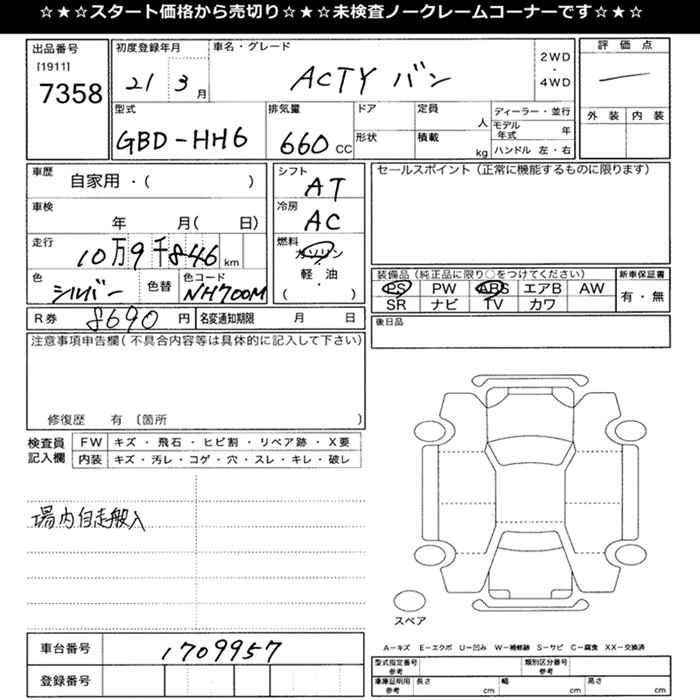 ☆★☆★スタート価格から売切り☆★☆★未検査ノークレームコーナーです☆★☆★
出品番号
[1911]
7358
初度登録年月
21 3 月
車名・グレード
ACTY バン
2WD
・
4WD
評価点
―
外装 内装
型式
GBD-HH6
排気量
660 CC
ドア
形状
定員
人
積載
kg
ディーラー・並行
モデル年式 年
ハンドル 左・右
車歴
自家用・( )
車検
年 月( 日)
走行
10万9千846 km
色
シルバー
色替
色コード
NH700M
シフト
AT
冷房
AC
燃料
ガソリン
軽・油
( )
セールスポイント(正常に機能するものに限ります)
装備品(純正品に限り○をつけてください)
PS PW ABS エアB AW
SR ナビ TV カワ
新車保証書
有・無
R券 8690 円
名変通知期限 月 日
後日品
注意事項申告欄(不具合内容等は具体的に記入して下さい)
修復歴 有〔箇所 )
検査員記入欄
FW キズ・飛石・ヒビ割・リペア跡・X要
内装 キズ・汚レ・コゲ・穴・スレ・キレ・破レ
場内自走搬入
スペア
A―キズ E―エクボ U―凹み W―補修跡 S―サビ C―腐食 XX―交換済
車台番号 1709957
登録番号
型式指定番号 参考
類別区分番号 参考
車庫証明用 参考
長さ cm 幅 cm 高さ cm